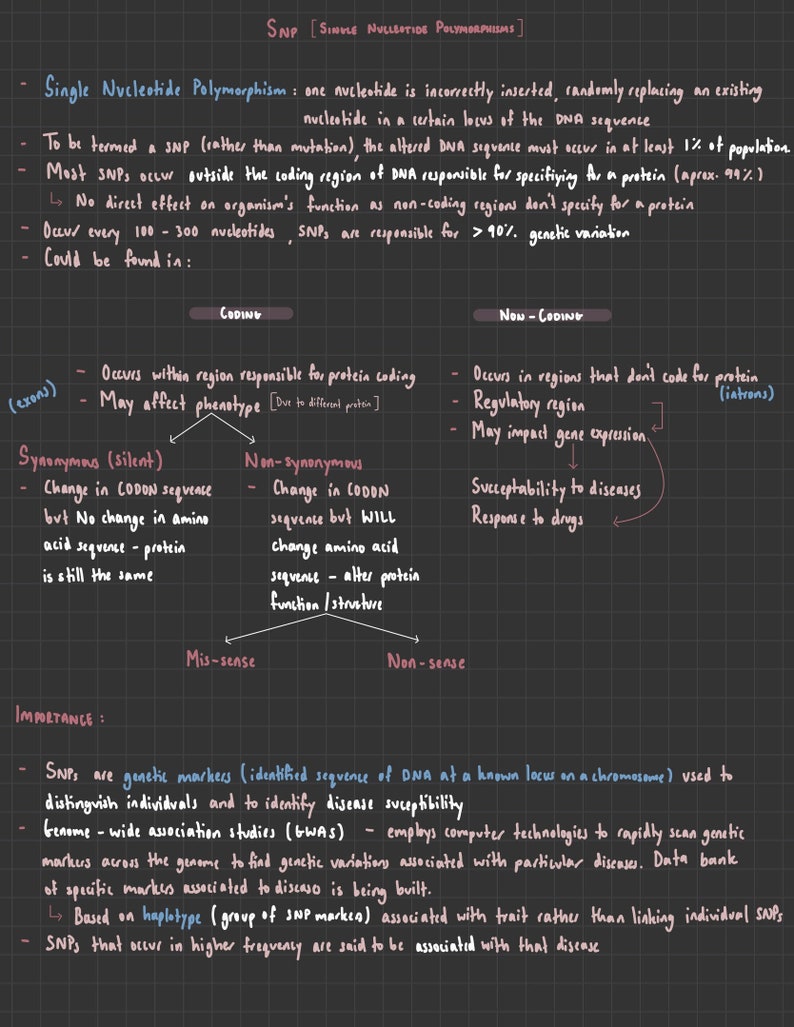 SNP [SINGLE NUCLEOTIDE POLYMORPHISMS]
- Single Nucleotide Polymorphism : one nucleotide is incorrectly inserted, randomly replacing an existing
nucleotide in a certain locus of the DNA sequence
- To be termed a SNP (rather than mutation), the altered DNA sequence must occur in at least 1% of population.
- Most SNPs occur outside the coding region of DNA responsible for specifiying for a protein (aprox. 99%)
↳ No direct effect on organism's function as non-coding regions don't specify for a protein
- Occur every 100 - 300 nucleotides, SNPs are responsible for > 90% genetic variation
- Could be found in :
CODING
(exons)
- Occurs within region responsible for protein coding
- May affect phenotype [Due to different protein]
Synonymous (silent)
- Change in CODON sequence
but No change in amino
acid sequence - protein
is still the same
Non-synonymous
- Change in CODON
sequence but WILL
change amino acid
sequence - alter protein
function / structure
Mis-sense
Non-sense
NON-CODING
- Occurs in regions that don't code for protein
(introns)
- Regulatory region
- May impact gene expression
Succeptability to diseases
Response to drugs
IMPORTANCE :
- SNPs are genetic markers (identified sequence of DNA at a known locus on a chromosome) used to
distinguish individuals and to identify disease suceptibility
- Genome - wide association studies (GWAS) - employs computer technologies to rapidly scan genetic
markers across the genome to find genetic variations associated with particular diseases. Data bank
of specific markers associated to disease is being built.
↳ Based on haplotype (group of SNP markers) associated with trait rather than linking individual SNPs
- SNPs that occur in higher frequency are said to be associated with that disease